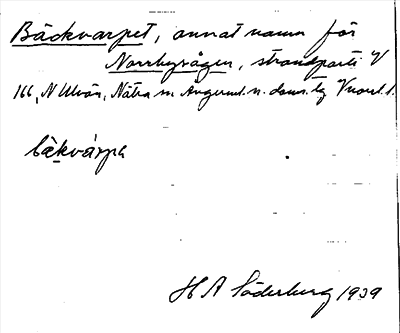 Bäckvarpet, annat namn för
Norrbyvågen, strandparti V
166, N Ulvön, Nätra sn. Ångerml. n. doms. tg V norrl. l.
bäkvárpə
H A Söderberg 1939